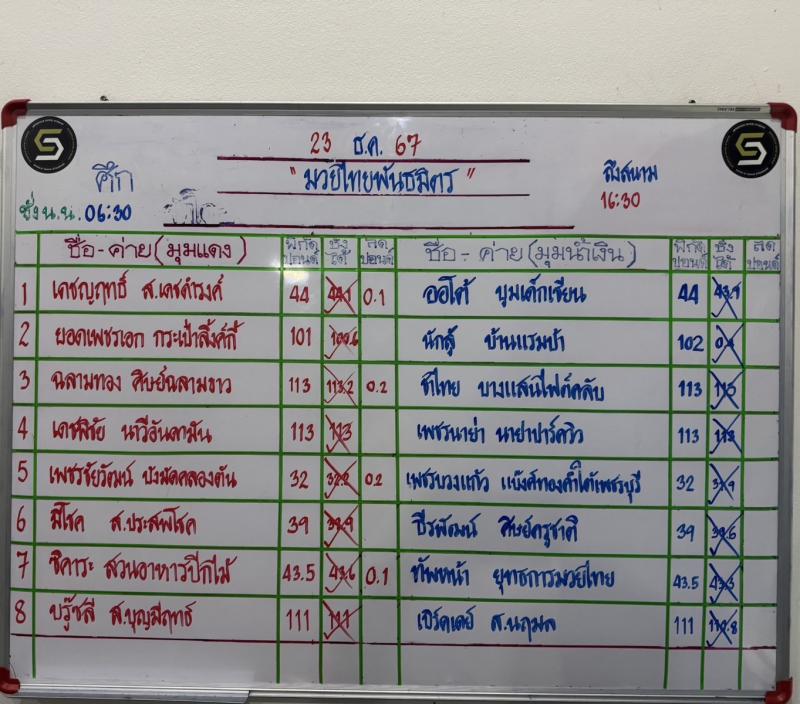 23 ธ.ค. 67
ศึก "มวยไทยพันธมิตร" ถึงสนาม
ชั่ง น.น. 06:30 16:30
ชื่อ-ค่าย (มุมแดง) พิกัดปอนด์ ชั่งได้ ลดปอนด์ ชื่อ - ค่าย (มุมน้ำเงิน) พิกัดปอนด์ ชั่งได้ ลดปอนด์
1 เดชณฤทธิ์ ส.เดชดำรงค์ 44 44.1 0.1 ออโต้ บูมเด็กเซียน 44 43.9
2 ยอดเพชรเอก กระเป๋าสิ้งค์กี้ 101 100.6 นักสู้ บ้านแรมบ้า 102
3 ฉลามทอง ศิษย์ฉลามขาว 113 113.2 0.2 ชัไทย บางแสนไฟต์คลับ 113 113
4 เดชพิชัย นาวีอันดามัน 113 113 เพชรนาย่า นาย่าปาร์ควิว 113 113
5 เพชรชัยวัฒน์ บังมัดคลองตัน 32 32.2 0.2 เพชรบวงแก้ว แบ๊งค์ทองคำใต้เพชรบุรี 32 31.9
6 มีโชค ส.ประสพโชค 39 38.9 ธีรพัฒน์ ศิษย์ครูชาติ 39
7 ชิคาระ สวนอาหารปีกไม้ 43.5 43.6 0.1 ทัพหน้า ยุทธการมวยไทย 43.5 43.3
8 บรู๊ซลี ส.บุญมีฤทธิ์ 111 111 เฮิร์คเคย์ ส.นฤมล 111 110.8